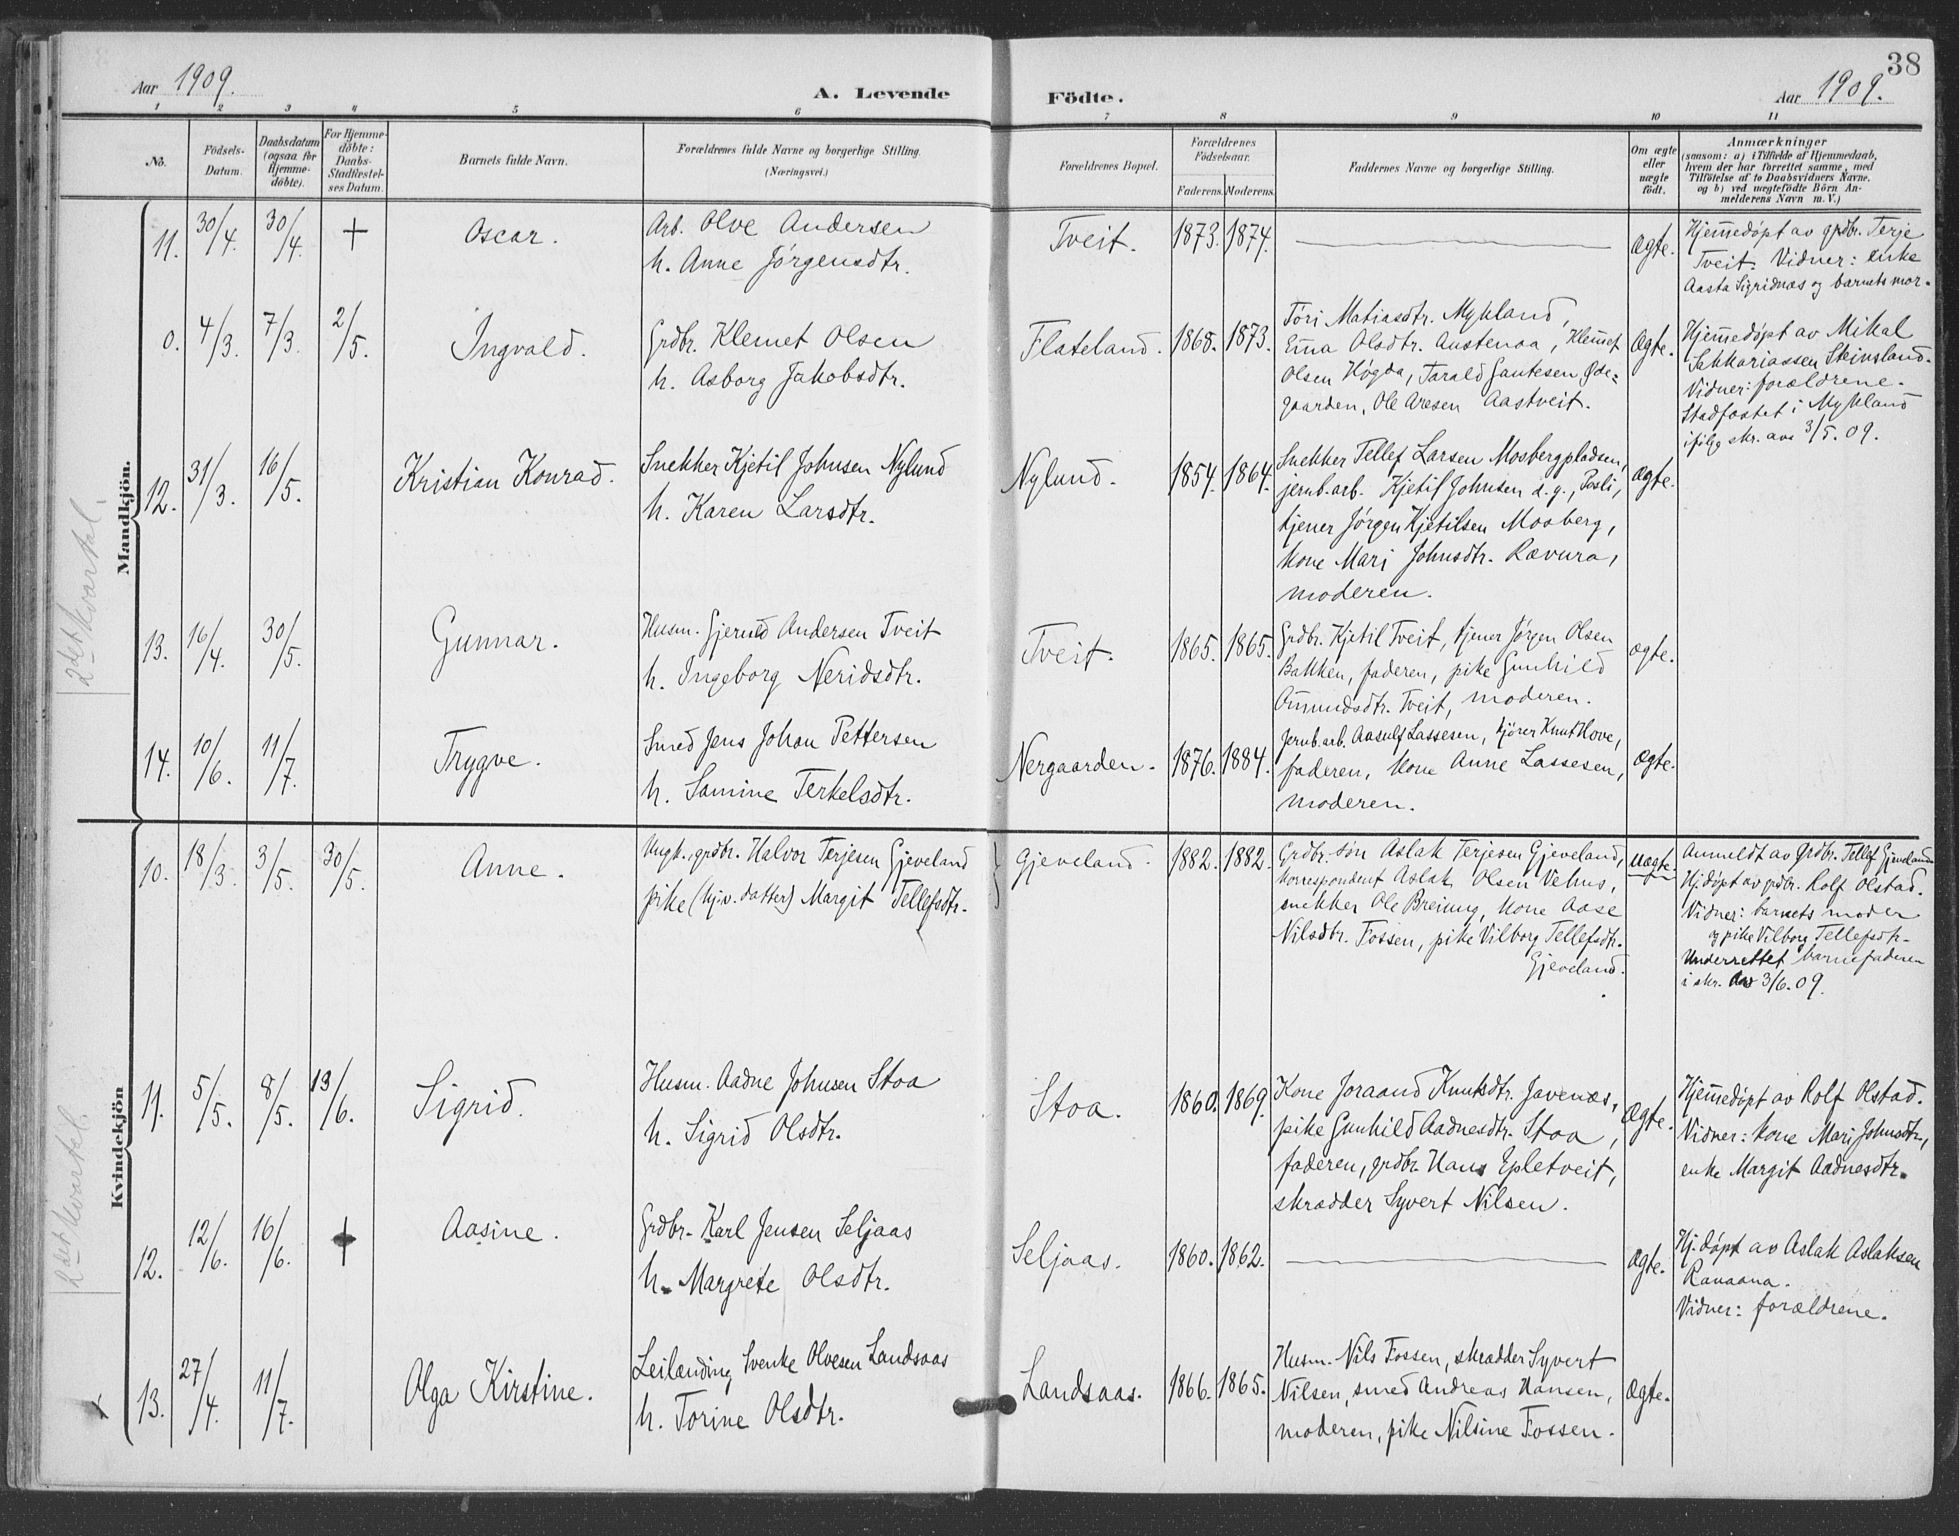 38
Aar 1909.
A. Levende
Födte.
Aar 1909.
1 2 3 4 5 6 7 8 9 10 11
No.
Födsels-
Datum.
Daabsdatum
(ogsaa for
Hjemme-
döbte).
For Hjemme-
döbte:
Daabs-
Stadfæstel-
ses Datum.
Barnets fulde Navn.
Forældrenes fulde Navne og borgerlige Stilling.
(Næringsvei.)
Forældrenes Bopæl.
Forældrenes
Födselsaar.
Faderens. Moderens.
Faddernes Navne og borgerlige Stilling.
Om ægte
eller
uægte
födt.
Anmærkninger
(saasom: a) i Tilfælde af Hjemmedaab,
hvem der har forrettet samme, med
Tilföielse af to Daabsvidners Navne,
og b) ved uægtefödte Börn An-
melderens Navn m. V.)
Mandkjön.
2det kvartel.
11. 30/4. 30/4. + Oscar.
Arb. Olve Andersen
h. Anne Jørgensdtr.
Tveit. 1873. 1874. Ægte.
Hjemmedøpt av grdbr. Terje
Tveit. Vidner: enke
Aasta Sigridnæs og barnets mor.
0. 4/3. 7/3. 2/5. Ingvald.
Grdbr. Klemet Olsen
h. Asborg Jakobsdtr.
Flateland. 1868. 1873.
Tøri Matiasdtr. Mykland,
Emma Olsdtr. Austenaa, Klemmet
Olsen Høgda, Tarald Gautesen Øde-
gaarden, Ole Aresen Aastveit.
Ægte.
Hjemmedøpt av Mikal
Sakkariassen Steinsland.
Vidner: forældrene.
Stadfæstet i Mykland
ifølg skr. av 3/5. 09.
12. 31/3. 16/5. Kristian Konrad.
Snekker Kjetil Johnsen Nylund
h. Karen Larsdtr.
Nylund. 1854. 1864.
Snekker Tellef Larsen Mosbergpladsen,
jernb.arb. Kjetil Johnsen d. y., Posli,
tjener Jørgen Kjetilsen Mosberg,
kone Mari Johnsdtr. Rævura,
moderen.
Ægte.
13. 16/4. 30/5. Gunnar.
Husm. Gjerud Andersen Tveit
h. Ingeborg Neridsdtr.
Tveit. 1865. 1865.
Grdbr. Kjetil Tveit, tjener Jørgen Olsen
Bakken, faderen, pike Gunhild
Aamundsdtr. Tveit, moderen.
Ægte.
14. 10/6. 11/7. Trygve.
Smed Jens Johan Pettersen
h. Samine Terkelsdtr.
Nergaarden. 1876. 1884.
Jernb.arb. Aasulf Lassesen, kjører Knut Hove,
faderen, kone Anne Lassesen,
moderen.
Ægte.
Kvindekjön
2det kvartel.
10. 18/3. 3/5. 30/5. Anne.
Ungk. grdbr. Halvor Terjesen Gjeveland
pike (hjv. datter) Margit Tellefsdtr.
Gjeveland. 1882. 1882.
Grdbr. søn Aslak Terjesen Gjeveland,
korrespondent Aslak Olsen Vehus,
snekker Ole Breimy, kone Aase
Nilsdtr. Fossen, pike Vilborg Tellefsdtr.
Gjeveland.
Uægte.
Anmeldt av grdbr. Tellef Gjeveland
Hj.døpt av grdbr. Rolf Olstad.
Vidner: barnets moder
og pike Vilborg Tellefsdtr.
Underrettet barnefaderen
i skr. av 3/6. 09.
11. 5/5. 8/5. 13/6. Sigrid.
Husm. Aadne Johnsen Stoa
h. Sigrid Olsdtr.
Stoa. 1860. 1869.
Kone Joraand Knutsdtr. Javenæs,
pike Gunhild Aadnesdtr. Stoa,
faderen, grdbr. Hans Epletveit,
skrædder Syvert Nilsen.
Ægte.
Hjemmedøpt av Rolf Olstad.
Vidner: kone Mari Johnsdtr.,
enke Margit Aadnesdtr.
12. 12/6. 16/6. + Aasine.
Grdbr. Karl Jensen Seljaas
h. Margrete Olsdtr.
Seljaas. 1860. 1862. Ægte.
Hj. døpt av Aslak Aslaksen
Ranaana.
Vidner: forældrene.
13. 27/4. 11/7. Olga Kirstine.
Leilænding Svenke Olvesen Landsaas
h. Torine Olsdtr.
Landsaas. 1866. 1865.
Husm. Nils Fossen, skrædder Syvert
Nilsen, smed Andreas Hansen,
moderen, pike Nilsine Fossen.
Ægte.